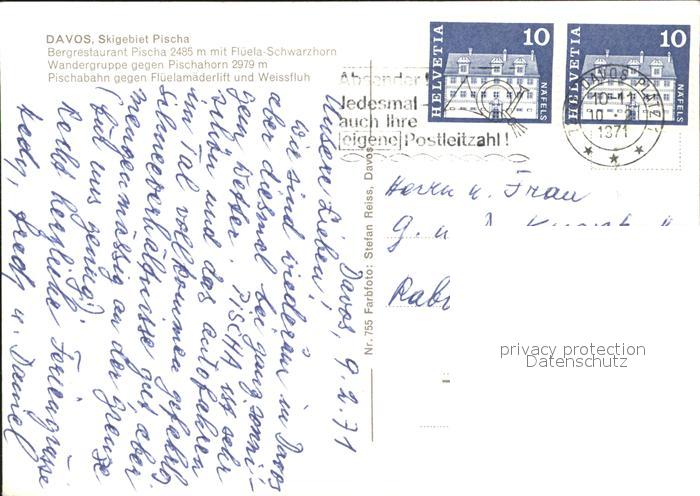 DAVOS, Skigebiet Pischa
Bergrestaurant Pischa 2485 m mit Flüela-Schwarzhorn
Wandergruppe gegen Pischahorn 2979 m
Pischabahn gegen Flüelamäderlift und Weissfluh
HELVETIA 10 NÄFELS
HELVETIA 10 NÄFELS
Absender!
Jedesmal
auch Ihre
eigene Postleitzahl!
DAVOS PLATZ
10-11
10.-2.
1371
Davos, 9.2.71
Unsere Lieben!
Wir sind wiederum in Davos
aber diesmal bei ganz sonni-
gem Wetter. PISCHA ist sehr
schön und das autofahren
im Tal vollkommen gefahrlos
Schneeverhältnisse gut aber
mengenmässig an der Grenze
(für uns genug)
Recht herzliche Feriengrüsse
Hedy, Fredy u. Daniel
Nr. 755 Farbfoto: Stefan Reiss, Davos
Herrn u. Frau
G. u.
privacy protection
Datenschutz